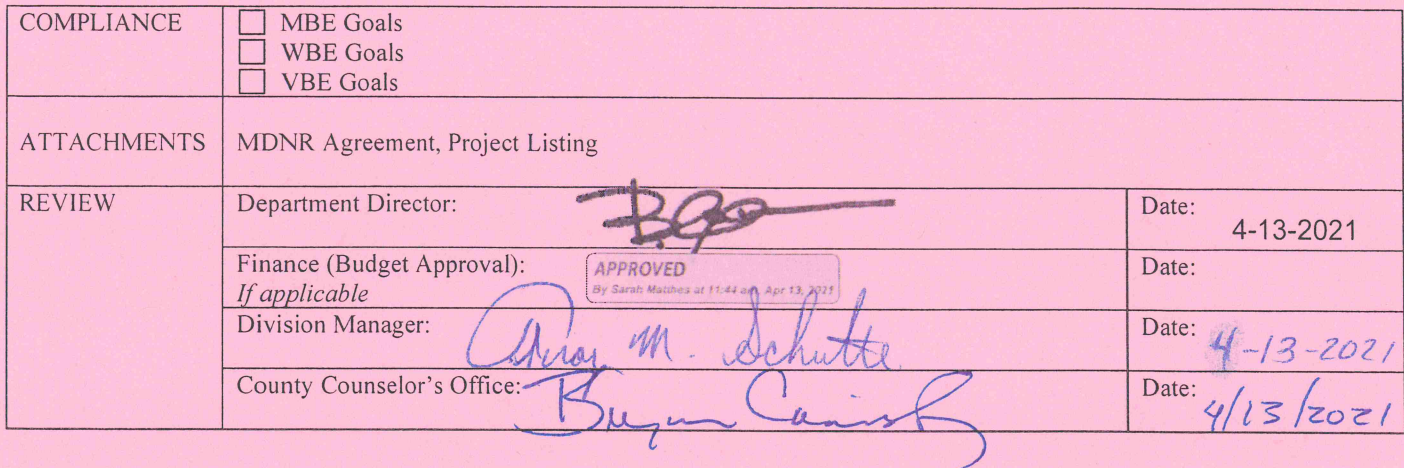 COMPLIANCE
MBE Goals
WBE Goals
VBE Goals
ATTACHMENTS
MDNR Agreement, Project Listing
REVIEW
Department Director:
Date:
4-13-2021
Finance (Budget Approval):
If applicable
APPROVED
By Sarah Matthes at 11:44 am, Apr 13, 2021
Date:
Division Manager:
M. Schutte
Date:
4-13-2021
County Counselor's Office:
Bryan
Date:
4/13/2021